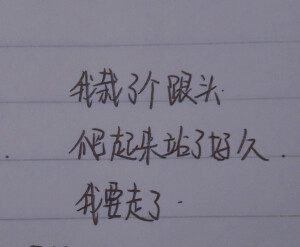 我栽了个跟头
爬起来站了好久.
我要走了.